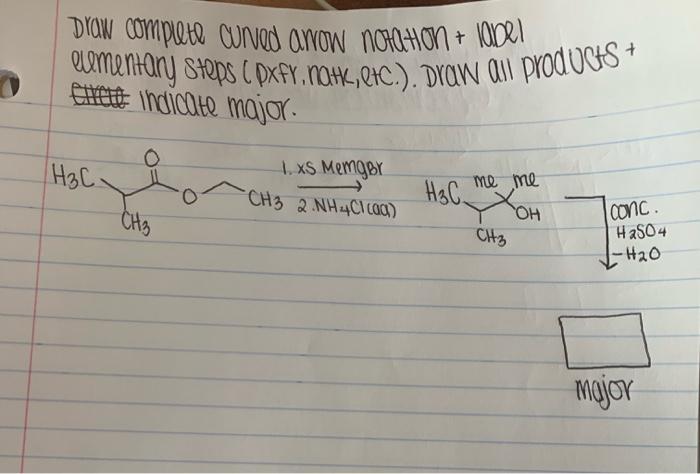 Draw complete curved arrow notation + label
elementary steps (pxfr, natk, etc.). Draw all products +
indicate major.
H3C
O
O
CH3
CH3
1. xs MeMgBr
2. NH4Cl (aq)
H3C
me me
OH
CH3
conc.
H2SO4
-H2O
major